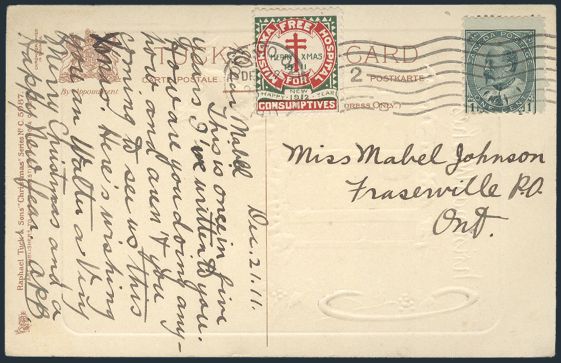 TUCK'S POST CARD
CARTE POSTALE
POSTKARTE
By Appointment
(ADDRESS ONLY)
MUSKOKA FREE HOSPITAL
MERRY XMAS
1911
FOR
NEW
HAPPY 1912 YEAR
CONSUMPTIVES
CANADA POSTAGE
1 1
2
Dec. 21. 11.
Dear Mabel
This is once in five
years I've written to you.
How are you doing any-
how and aren't you
coming to see us this
Xmas. Here's wishing
you an Walter a Very
Merry Christmas and a
Happy New Year.
Miss Mabel Johnson
Fraserville P.O.
Ont.
Raphael Tuck & Sons' "Christmas" Series No. C. 5087.